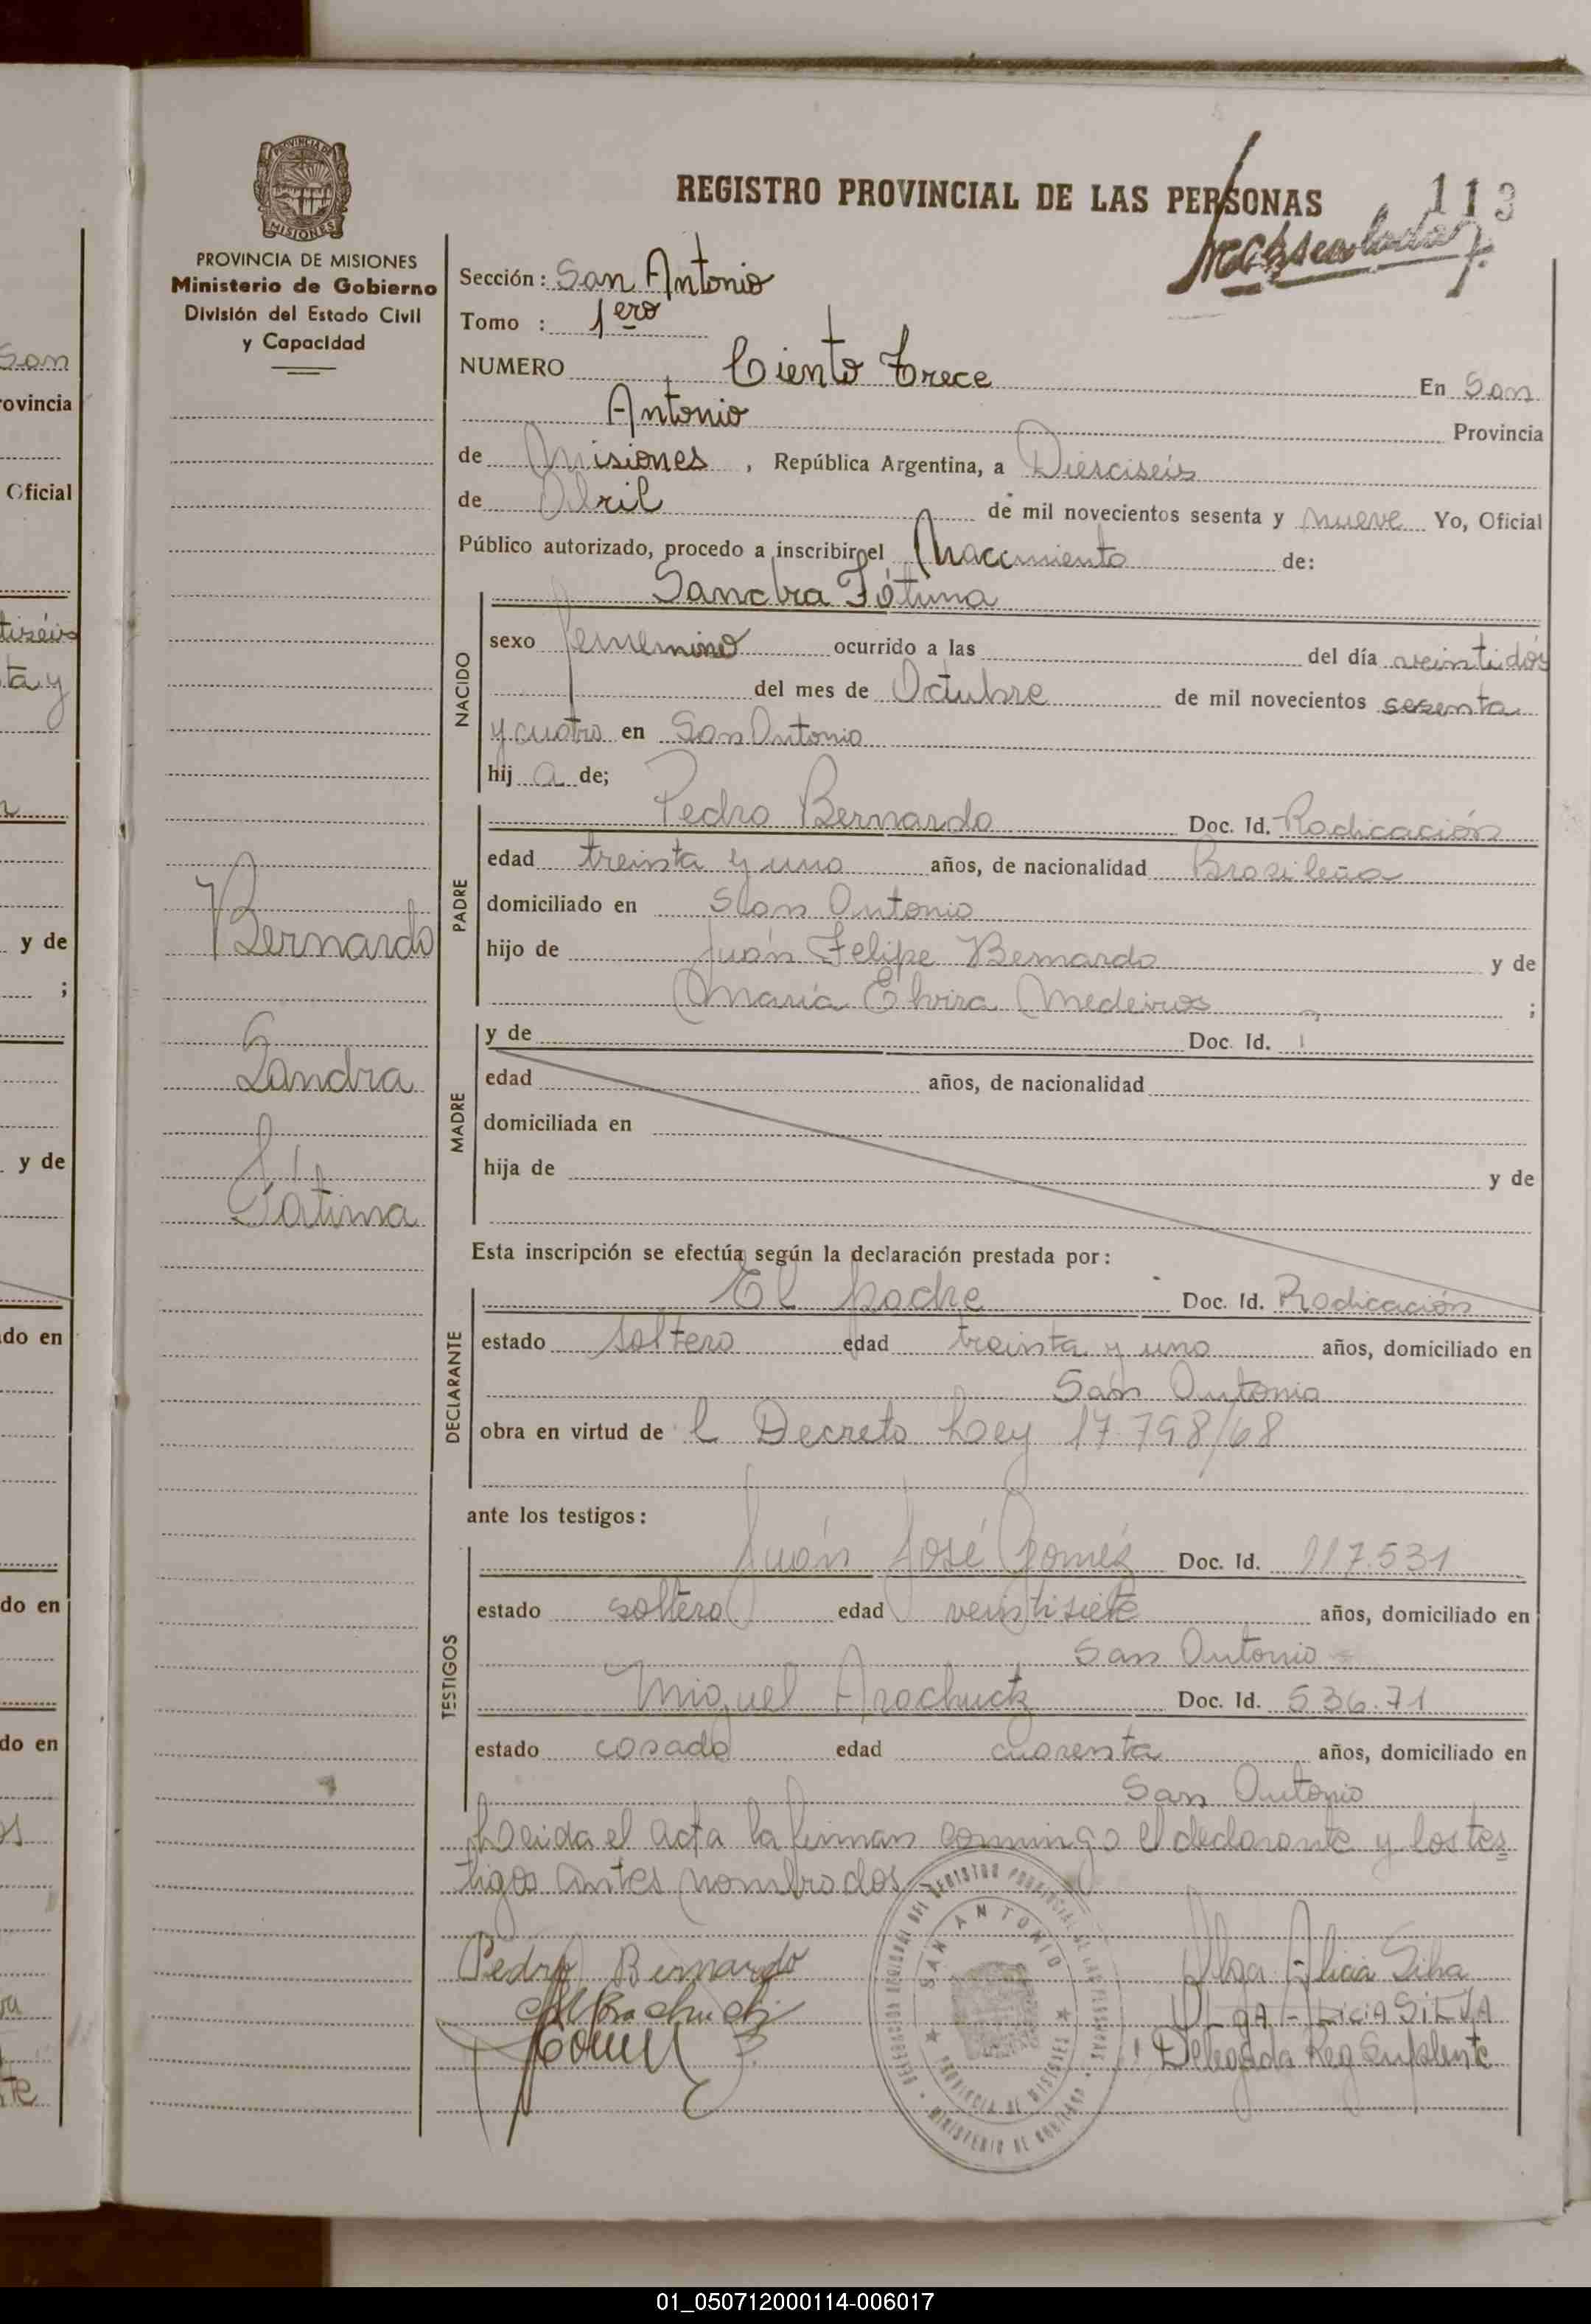 PROVINCIA DE MISIONES
Ministerio de Gobierno
División del Estado Civil
y Capacidad
Bernardo
Sandra
Fátima
REGISTRO PROVINCIAL DE LAS PERSONAS
113
Sección: San Antonio
Tomo : 1ero
NUMERO Ciento trece En San
Antonio Provincia
de Misiones, República Argentina, a Diesciseis
de Abril de mil novecientos sesenta y nueve Yo, Oficial
Público autorizado, procedo a inscribir el Nacimiento de:
Sandra Fátima
NACIDO
sexo femenino ocurrido a las del día veintidós
del mes de Octubre de mil novecientos sesenta
y cuatro en San Antonio
hij a de;
PADRE
Pedro Bernardo Doc. Id. Radicación
edad treinta y uno años, de nacionalidad Brasileña
domiciliado en San Antonio
hijo de Juan Felipe Bernardo y de
María Elvira Medeiros ;
MADRE
y de Doc. Id.
edad años, de nacionalidad
domiciliada en
hija de y de
Esta inscripción se efectúa según la declaración prestada por:
DECLARANTE
El padre Doc. Id. Radicación
estado soltero edad treinta y uno años, domiciliado en
San Antonio
obra en virtud de l Decreto Ley 17.798/68
ante los testigos:
TESTIGOS
Juán José Goméz Doc. Id. 117.531
estado soltero edad veintisiete años, domiciliado en
San Antonio
Miguel Arachuck Doc. Id. 536.71
estado casado edad cuarenta años, domiciliado en
San Antonio
Leida el acta la firman conmigo el declarante y los tes
tigos antes nombrados
Pedro Bernardo
Olga Alicia Silva
OLGA ALICIA SILVA
Delegada Reg Suplente
SAN ANTONIO
PROVINCIA DE MISIONES
MINISTERIO DE GOBIERNO
San
Provincia
Oficial
ta y
y de
;
y de
do en
do en
do en
01_050712000114-006017